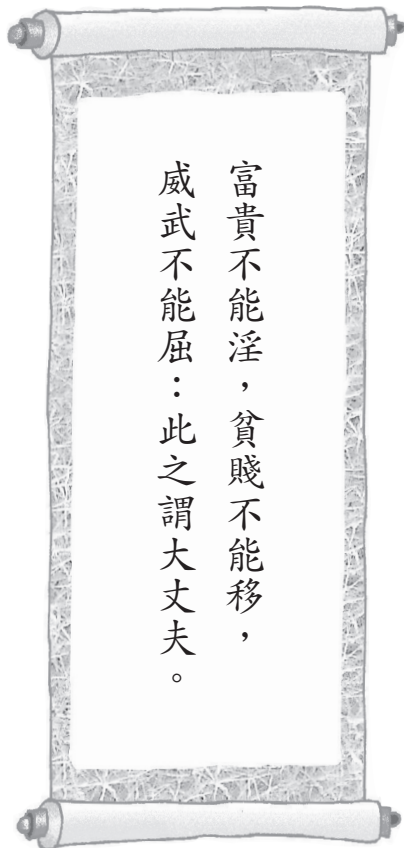 富貴不能淫，貧賤不能移，
威武不能屈：此之謂大丈夫。